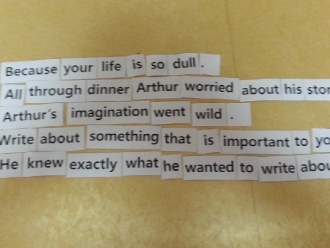 Because your life is so dull .
All through dinner Arthur worried about his stor
Arthur's imagination went wild .
Write about something that is important to yo
He knew exactly what he wanted to write abou